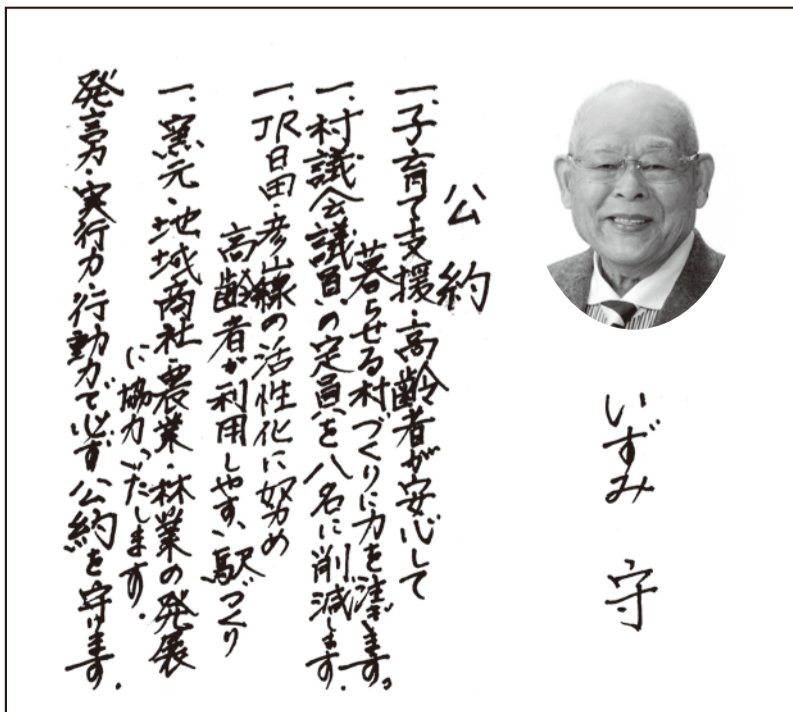 いずみ 守
公約
一、子育て支援・高齢者が安心して
暮らせる村づくりに力を注ぎます。
一、村議会議員の定員を八名に削減します。
一、JR日田・彦山線の活性化に努め
高齢者が利用しやすい駅づくり
一、窯元・地域商社・農業・林業の発展
に協力いたします。
発言力・実行力・行動力で必ず公約を守ります。